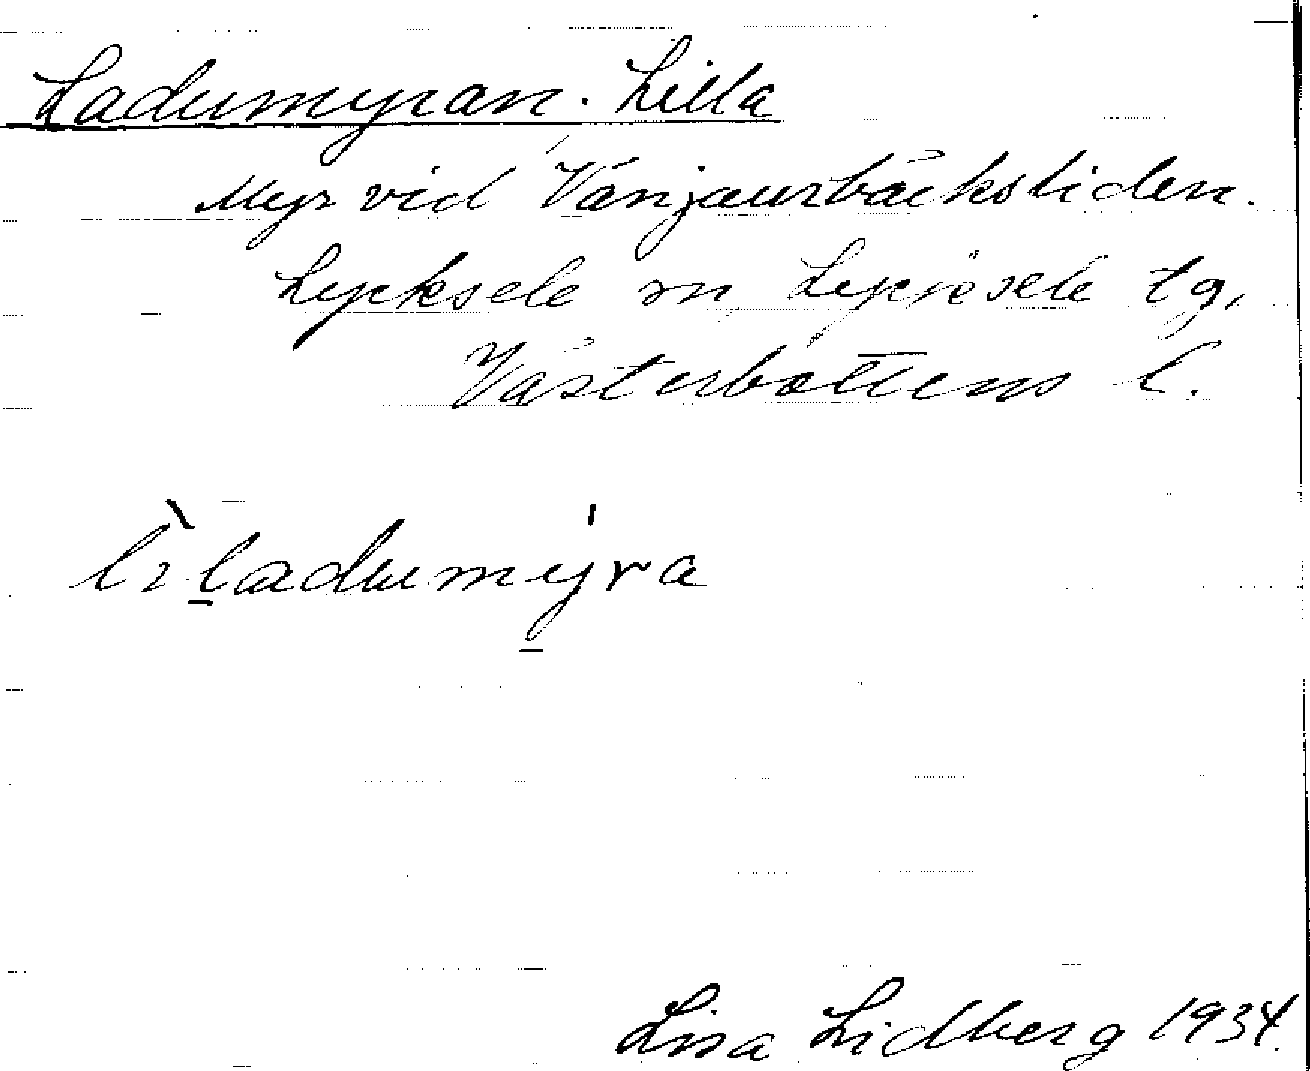 Ladumyran. Lilla
Myr vid Vänjaurbäcksliden.
Lycksele sn, Lycksele tg,
Västerbottens l.
lìlladumýra
Lisa Lidberg 1934.